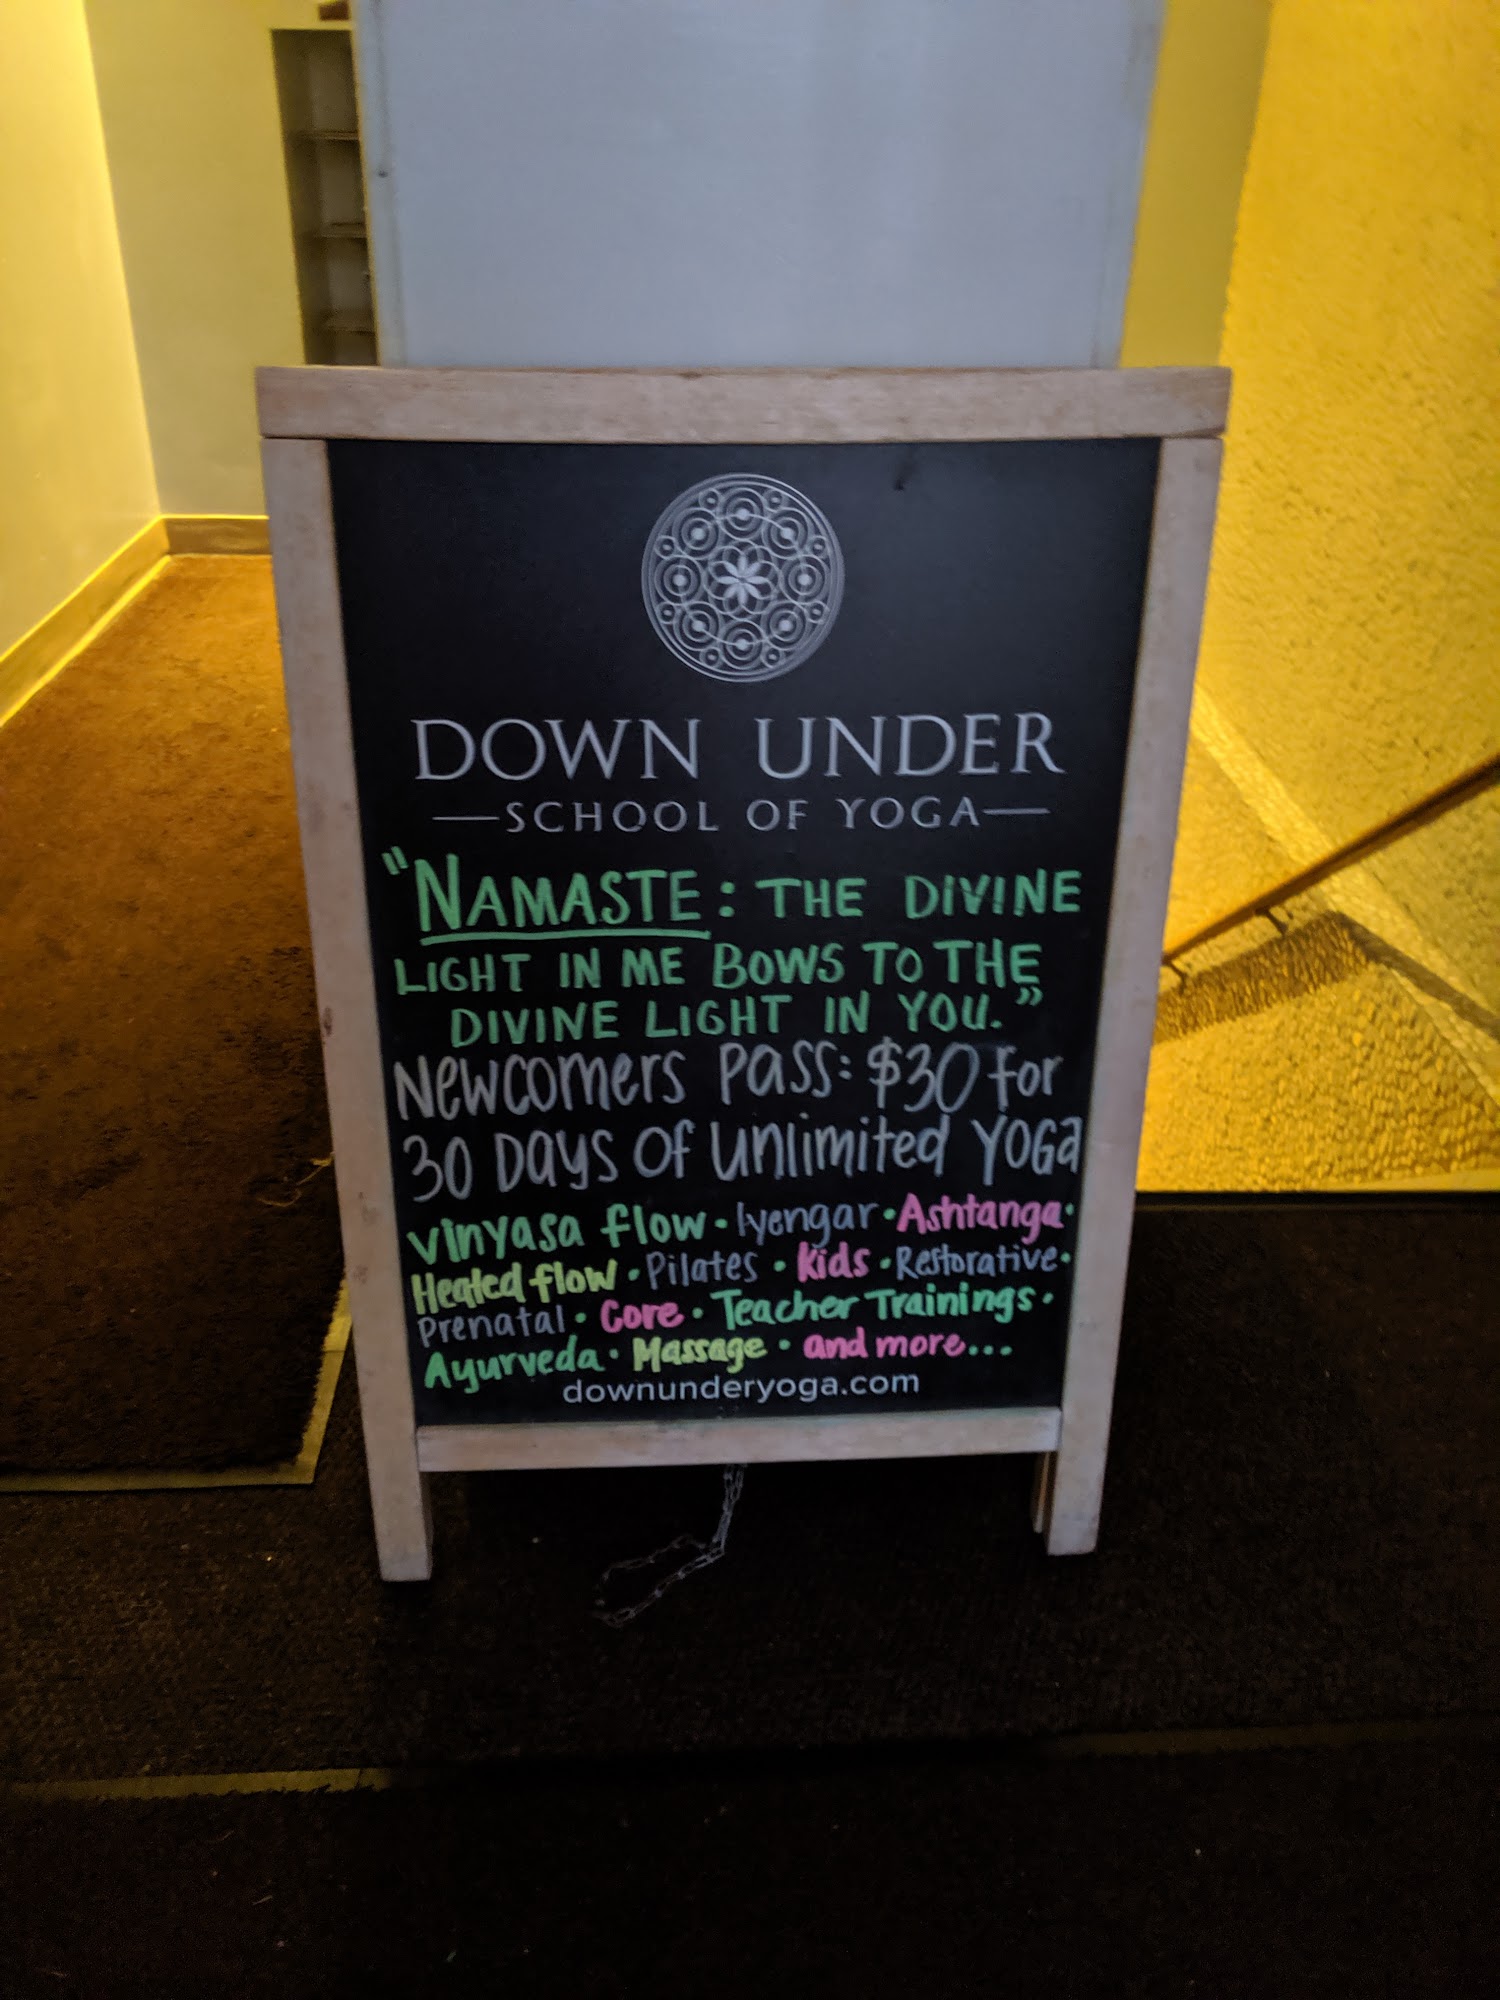 DOWN UNDER
—SCHOOL OF YOGA—
"NAMASTE: THE DIVINE
LIGHT IN ME BOWS TO THE
DIVINE LIGHT IN YOU."
NEWCOMERS PASS: $30 for
30 DAYS OF UNLIMITED YOGA
Vinyasa flow • Iyengar • Ashtanga •
Heated flow • Pilates • Kids • Restorative •
Prenatal • Core • Teacher Trainings •
Ayurveda • Massage • and more...
downunderyoga.com